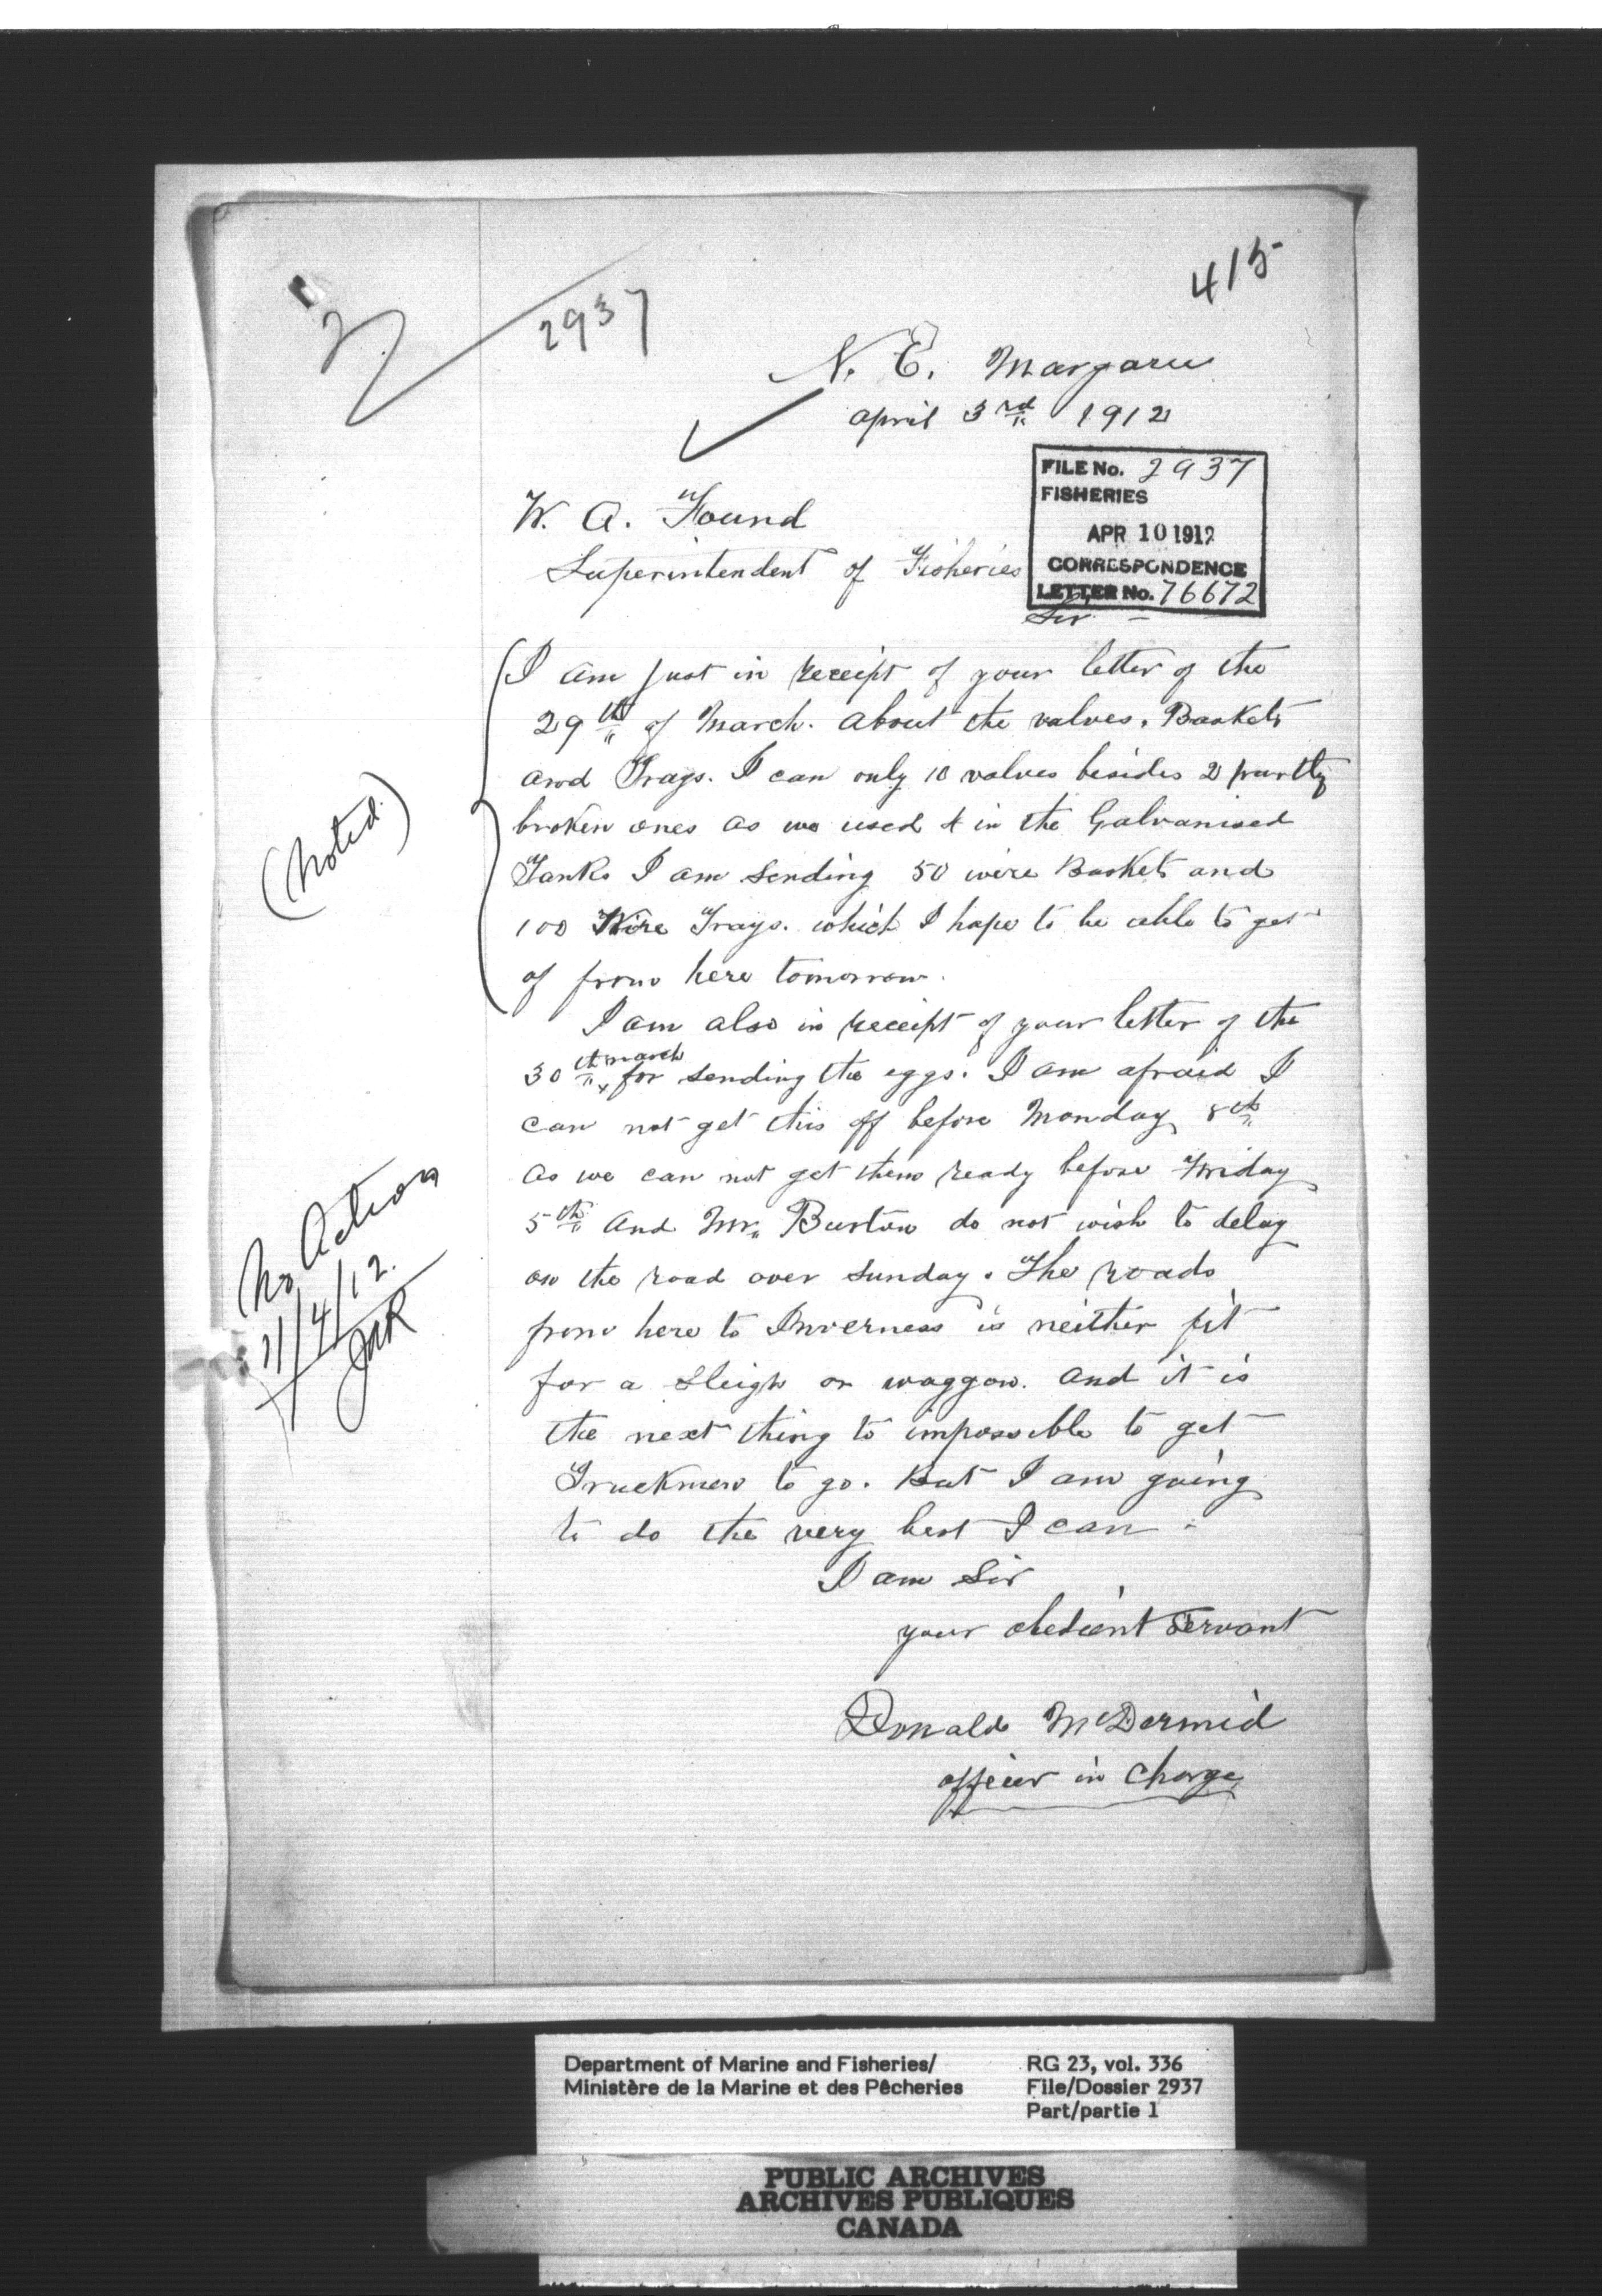 2937
415
N. E. Margaree
april 3rd 1912
FILE No. 2937
FISHERIES
APR 10 1912
CORRESPONDENCE
LETTER No. 76672
W. A. Found
Superintendent of Fisheries
Sir
I am just in receipt of your letter of the
29th of March. about the valves, Baskets
and Trays. I can only 10 valves besides 2 partly
broken ones as we used 4 in the Galvanised
Tanks I am sending 50 wire Baskets and
100 Wire Trays. which I hope to be able to get
of from here tomorrow.
(Noted)
I am also in receipt of your letter of the
30th march for sending the eggs. I am afraid I
can not get this off before Monday 8th
as we can not get them ready before Friday
5th and Mr. Burton do not wish to delay
on the road over Sunday. The roads
from here to Inverness is neither fit
for a sleigh or waggon. and it is
the next thing to impossible to get
Truckmen to go. But I am going
to do the very best I can.
No Action
11/4/12.
I am Sir
your obedient Servant
Donald McDermid
officer in charge
Department of Marine and Fisheries/
Ministère de la Marine et des Pêcheries
RG 23, vol. 336
File/Dossier 2937
Part/partie 1
PUBLIC ARCHIVES
ARCHIVES PUBLIQUES
CANADA